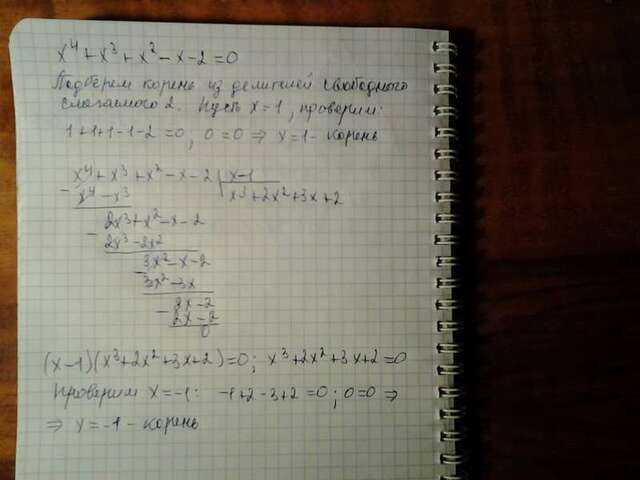 x⁴+x³+x²-x-2=0
Подберем корень из делителей свободного
слагаемого 2. Пусть x=1, проверим:
1+1+1-1-2=0, 0=0 ⇒ x=1- корень
x⁴+x³+x²-x-2 | x-1
- x⁴-x³ x³+2x²+3x+2
2x³+x²-x-2
- 2x³-2x²
3x²-x-2
- 3x²-3x
2x-2
- 2x-2
0
(x-1)(x³+2x²+3x+2)=0; x³+2x²+3x+2=0
Проверим x=-1: -1+2-3+2=0; 0=0 ⇒
⇒ x=-1 - корень